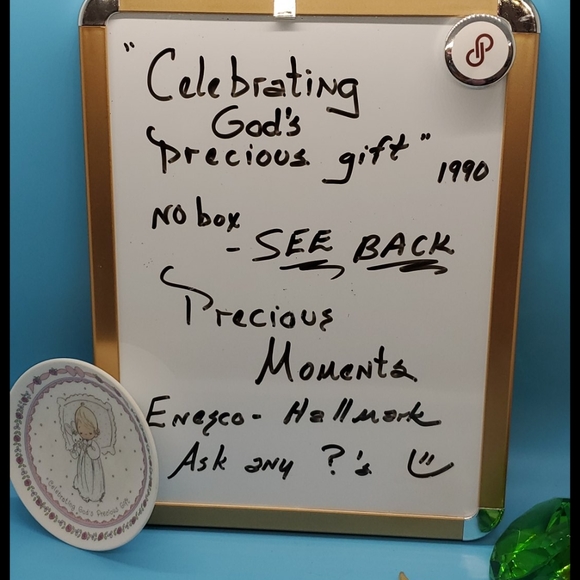 "Celebrating
God's
precious gift"
1990
No box
- SEE BACK
Precious
Moments
Enesco - Hallmark
Ask any ?'s
Celebrating God's Precious Gift